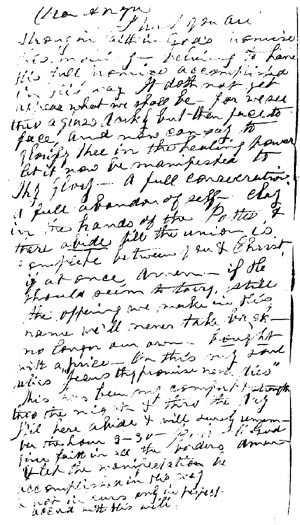 I trust you are
strong in faith in God's promise
this morning – believing to have
His full promise accomplished
in His way It doth not yet
appear what we shall be – for we see
thro a glass darkly but then face to
face, And now can say to
glorify Thee in the healing power
let it now be manifested to
Thy glory – A full consecration
A full abandon of self – clay
in the hands of the Potter &
there abide till the union is
complete between you & Christ
if at once, Amen – if He
should seem to tarry, still
the offering we make in His
name we'll never take back –
no longer our own – bought
with a price – On this my soul
relies Jesus thy promise never dies"
This has been my comfort & strength
thro the night & thro the day
I'll here abide & will surely
be the hour 3-30 – God
give faith in all the borders amen
& let the manifestation be
accomplished in His way
& not in ours only in perfect
accord with His will.